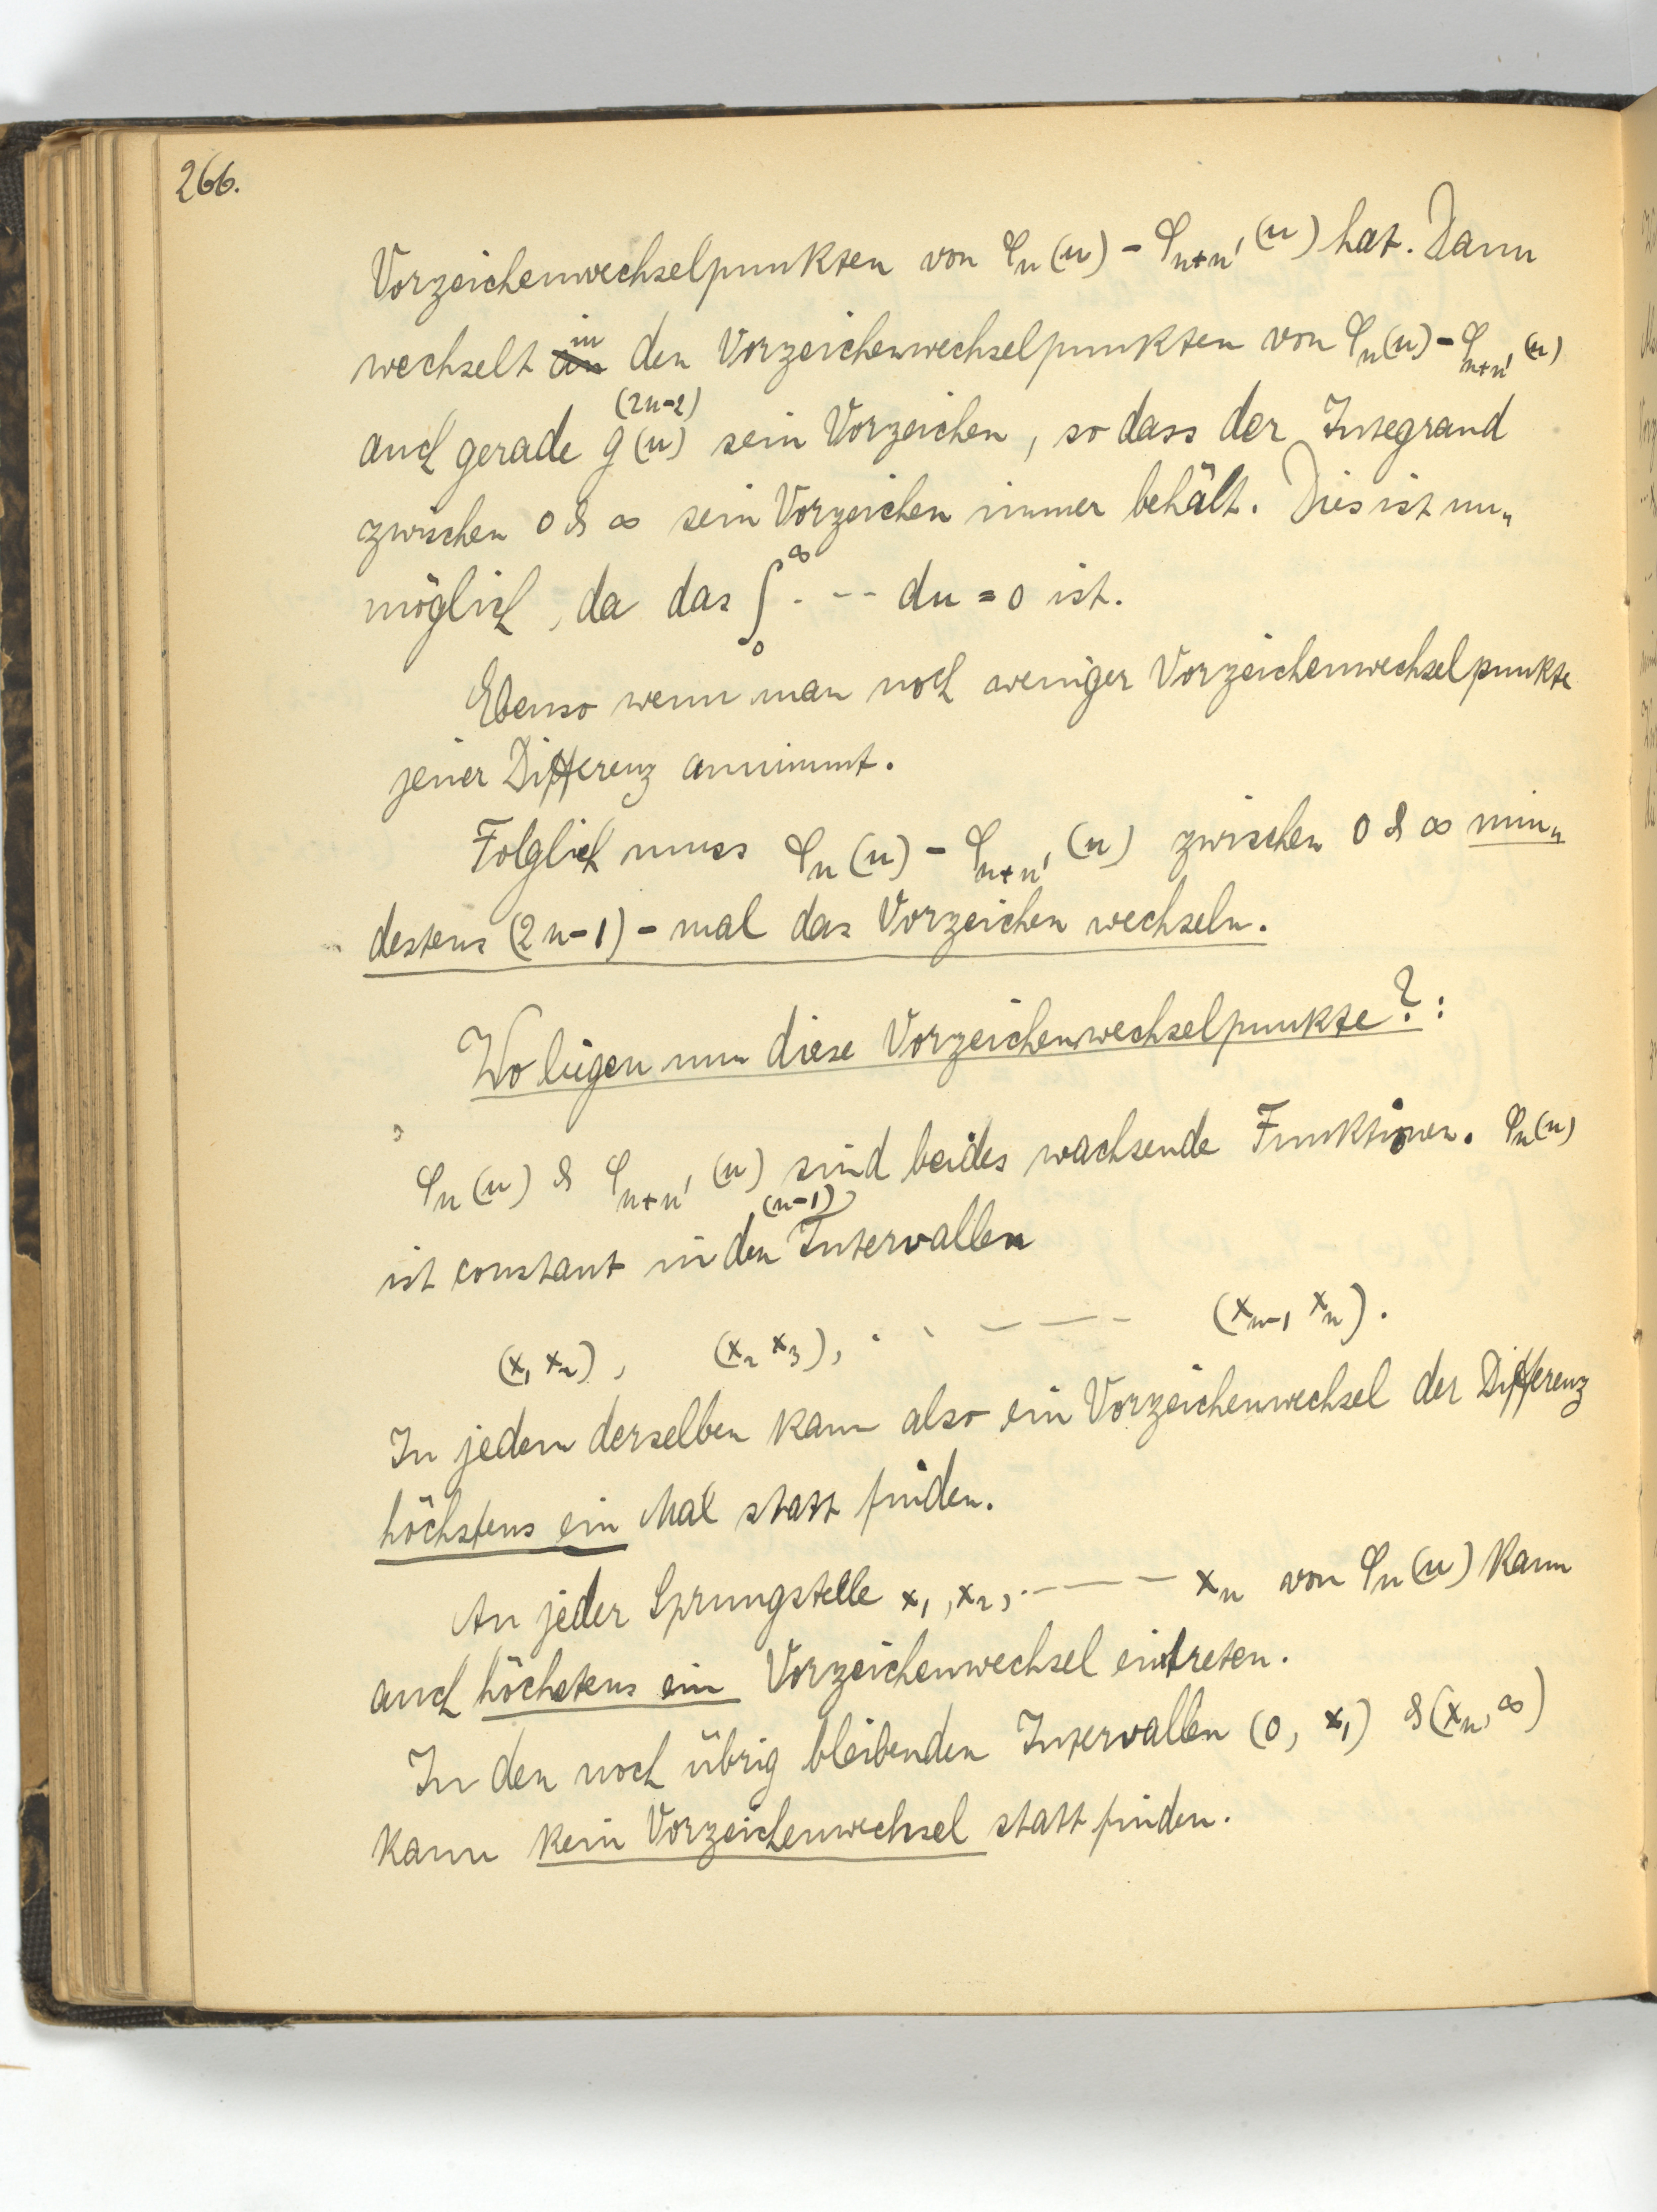 266.
Vorzeichenwechselpunkten von φₙ(u) - φₙ₊ₙ'(u) hat. Dann
wechselt in den Vorzeichenwechselpunkten von φₙ(u) - φₙ₊ₙ'(u)
auch gerade g(u) (2n-2) sein Vorzeichen, so dass der Integrand
zwischen 0 & ∞ sein Vorzeichen immer behält. Dies ist un„
möglich, da das ∫₀^∞ . -- du = 0 ist.
Ebenso wenn man noch weniger Vorzeichenwechselpunkte
jener Differenz annimmt.
Folglich muss φₙ(u) - φₙ₊ₙ'(u) zwischen 0 & ∞ min„
destens (2n-1) - mal das Vorzeichen wechseln.
Wo liegen nun diese Vorzeichenwechselpunkte?:
φₙ(u) & φₙ₊ₙ'(u) sind beides wachsende Funktionen. φₙ(u)
ist constant in den (n-1) Intervallen
(x₁ x₂), (x₂ x₃), . . - - - (xₙ₋₁ xₙ).
In jedem derselben kann also ein Vorzeichenwechsel der Differenz
höchstens ein Mal statt finden.
An jeder Sprungstelle x₁, x₂, . - - - xₙ von φₙ(u) kann
auch höchstens ein Vorzeichenwechsel eintreten.
In den noch übrig bleibenden Intervallen (0, x₁) & (xₙ, ∞)
kann kein Vorzeichenwechsel statt finden.